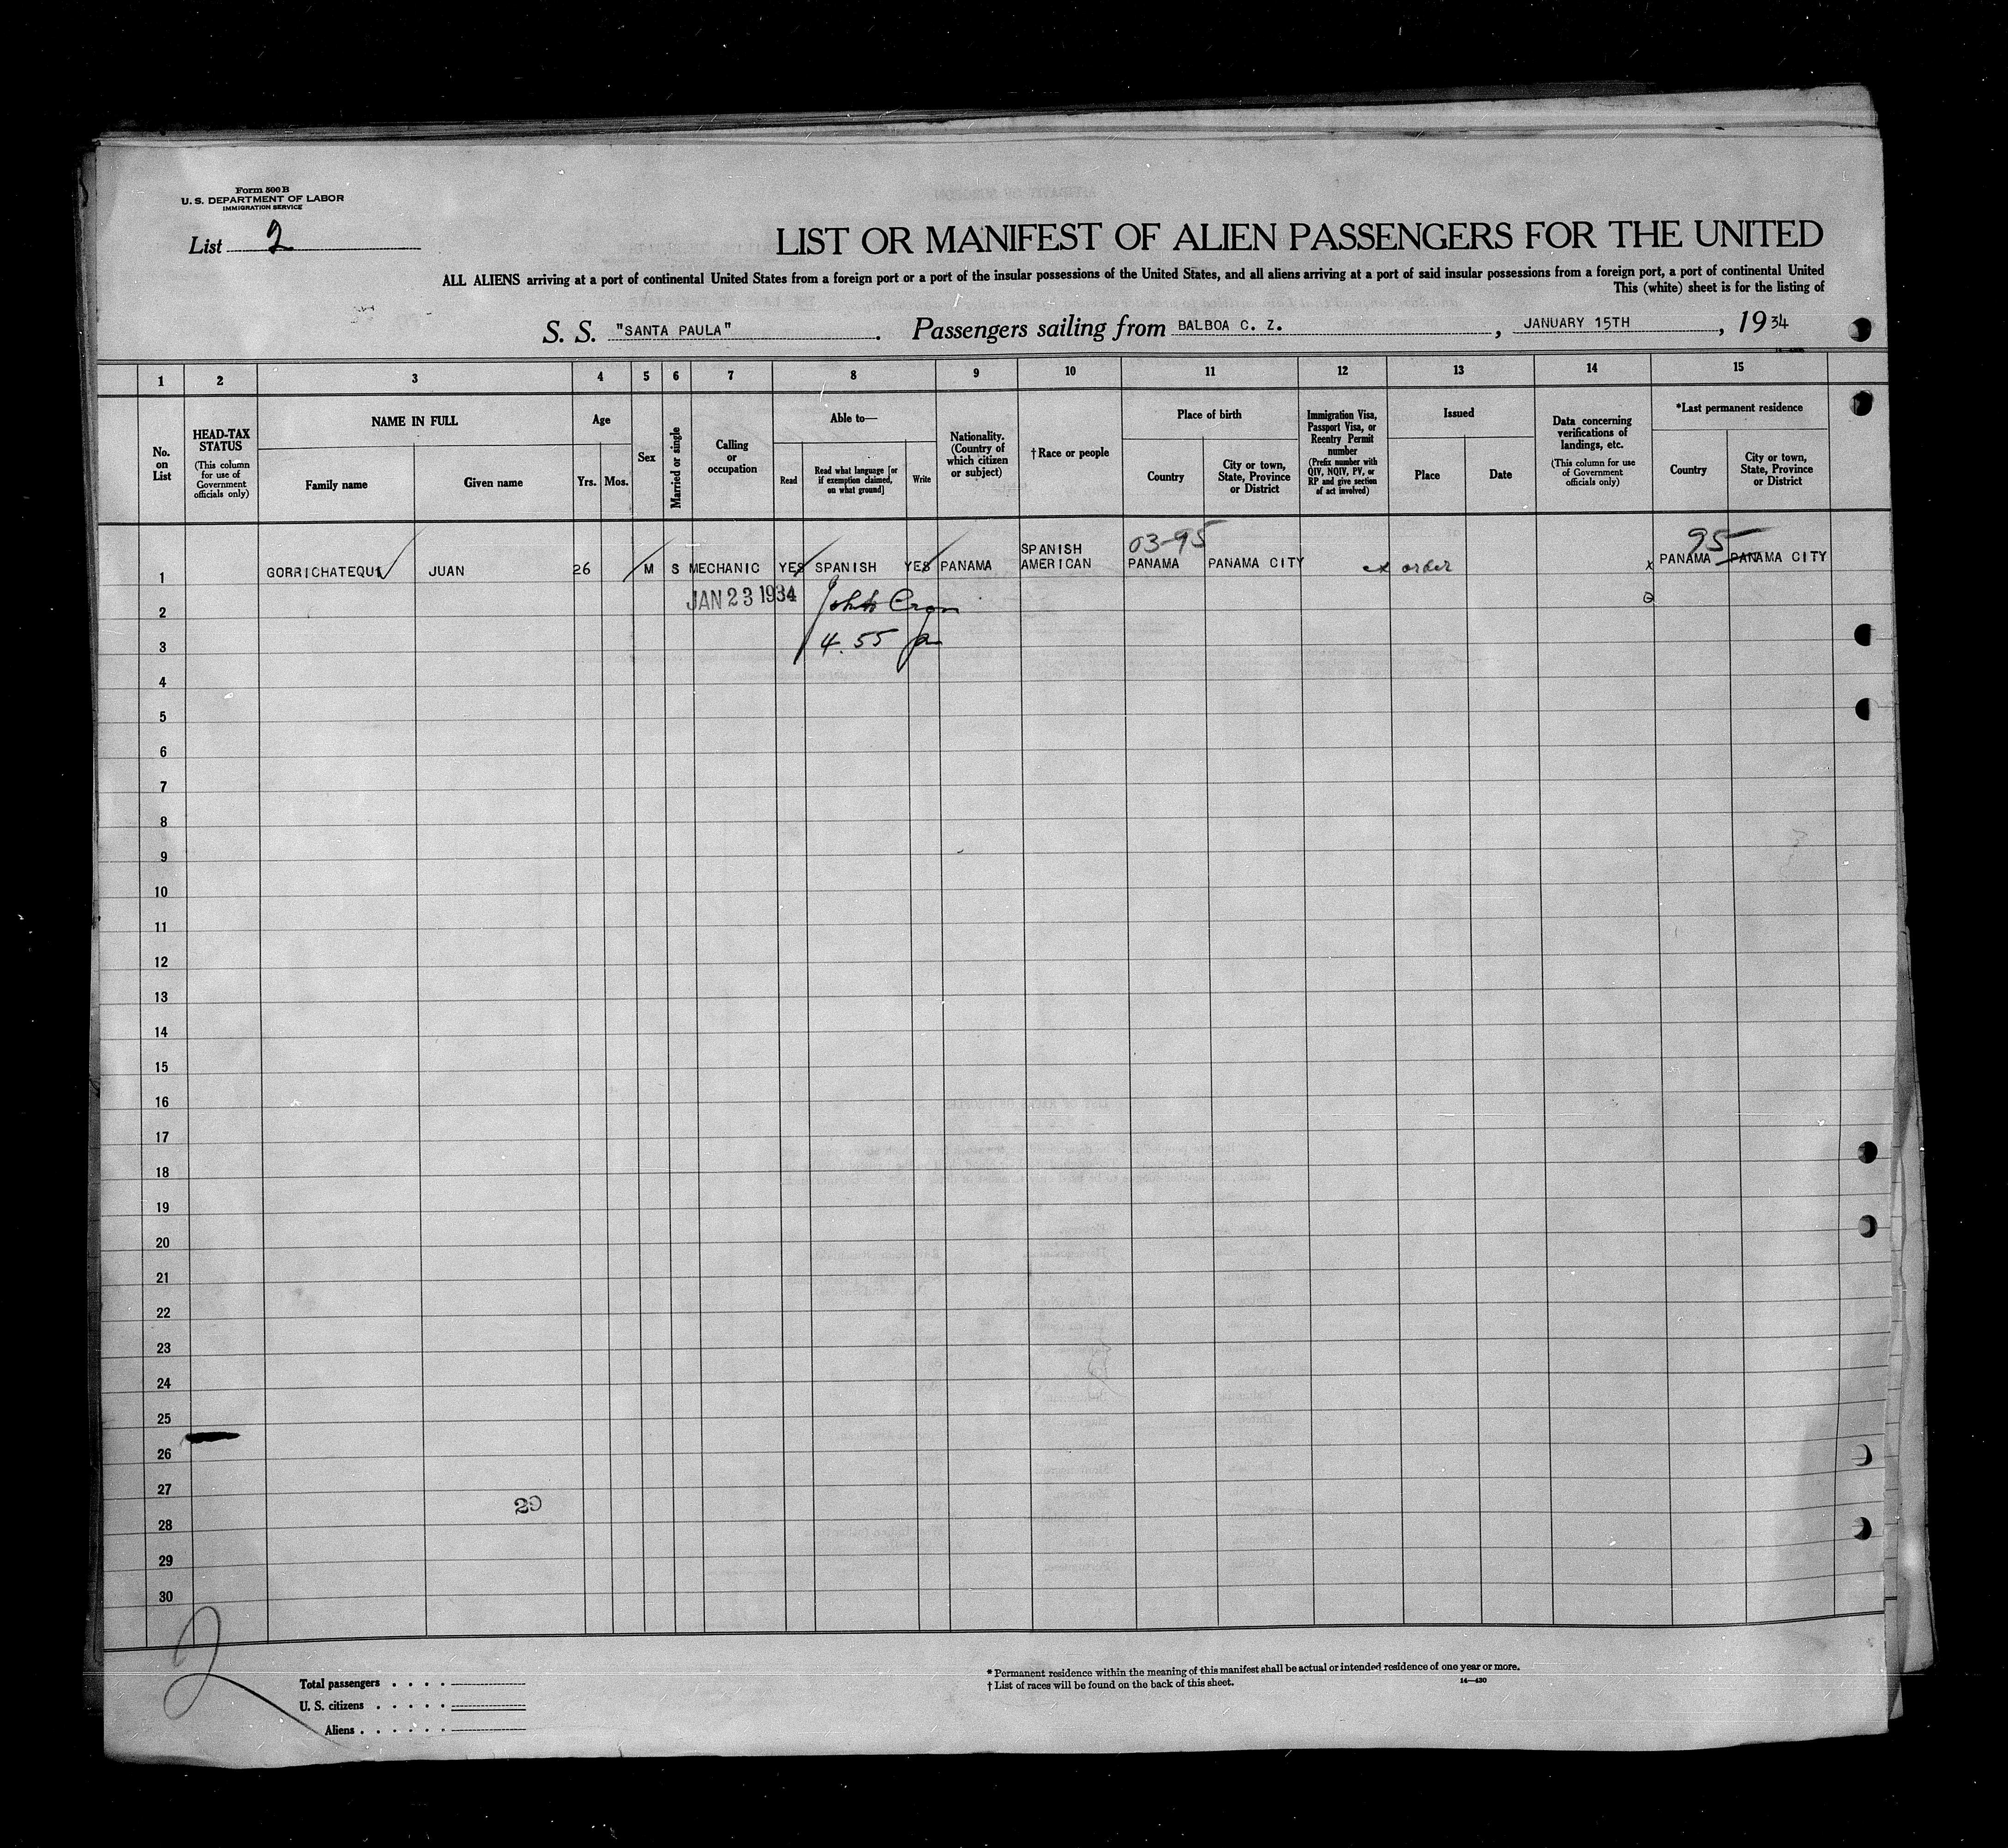 Form 500 B
U. S. DEPARTMENT OF LABOR
IMMIGRATION SERVICE
List 2
LIST OR MANIFEST OF ALIEN PASSENGERS FOR THE UNITED
ALL ALIENS arriving at a port of continental United States from a foreign port or a port of the insular possessions of the United States, and all aliens arriving at a port of said insular possessions from a foreign port, a port of continental United
This (white) sheet is for the listing of
S. S. "SANTA PAULA". Passengers sailing from BALBOA C. Z., JANUARY 15TH, 1934
1 2 3 4 5 6 7 8 9 10 11 12 13 14 15
No. on List
HEAD-TAX STATUS
(This column for use of Government officials only)
NAME IN FULL
Family name
Given name
Age
Yrs.
Mos.
Sex
Married or single
Calling or occupation
Able to—
Read
Read what language [or if exemption claimed, on what ground]
Write
Nationality. (Country of which citizen or subject)
†Race or people
Place of birth
Country
City or town, State, Province or District
Immigration Visa, Passport Visa, or Reentry Permit number
(Prefix number with QIV, NQIV, PV, or RP and give section of act involved)
Issued
Place
Date
Data concerning verifications of landings, etc.
(This column for use of Government officials only)
*Last permanent residence
Country
City or town, State, Province or District
03-95 95
1 GORRICHATEQUI JUAN 26 M S MECHANIC YES SPANISH YES PANAMA SPANISH AMERICAN PANAMA PANAMA CITY ex order x PANAMA PANAMA CITY
JAN 23 1934
2
3 4.55
4
5
6
7
8
9
10
11
12
13
14
15
16
17
18
19
20
21
22
23
24
25
26
27
29
28
29
30
2
Total passengers . . . .
U. S. citizens . . . . .
Aliens . . . . . .
* Permanent residence within the meaning of this manifest shall be actual or intended residence of one year or more.
† List of races will be found on the back of this sheet.
14—430